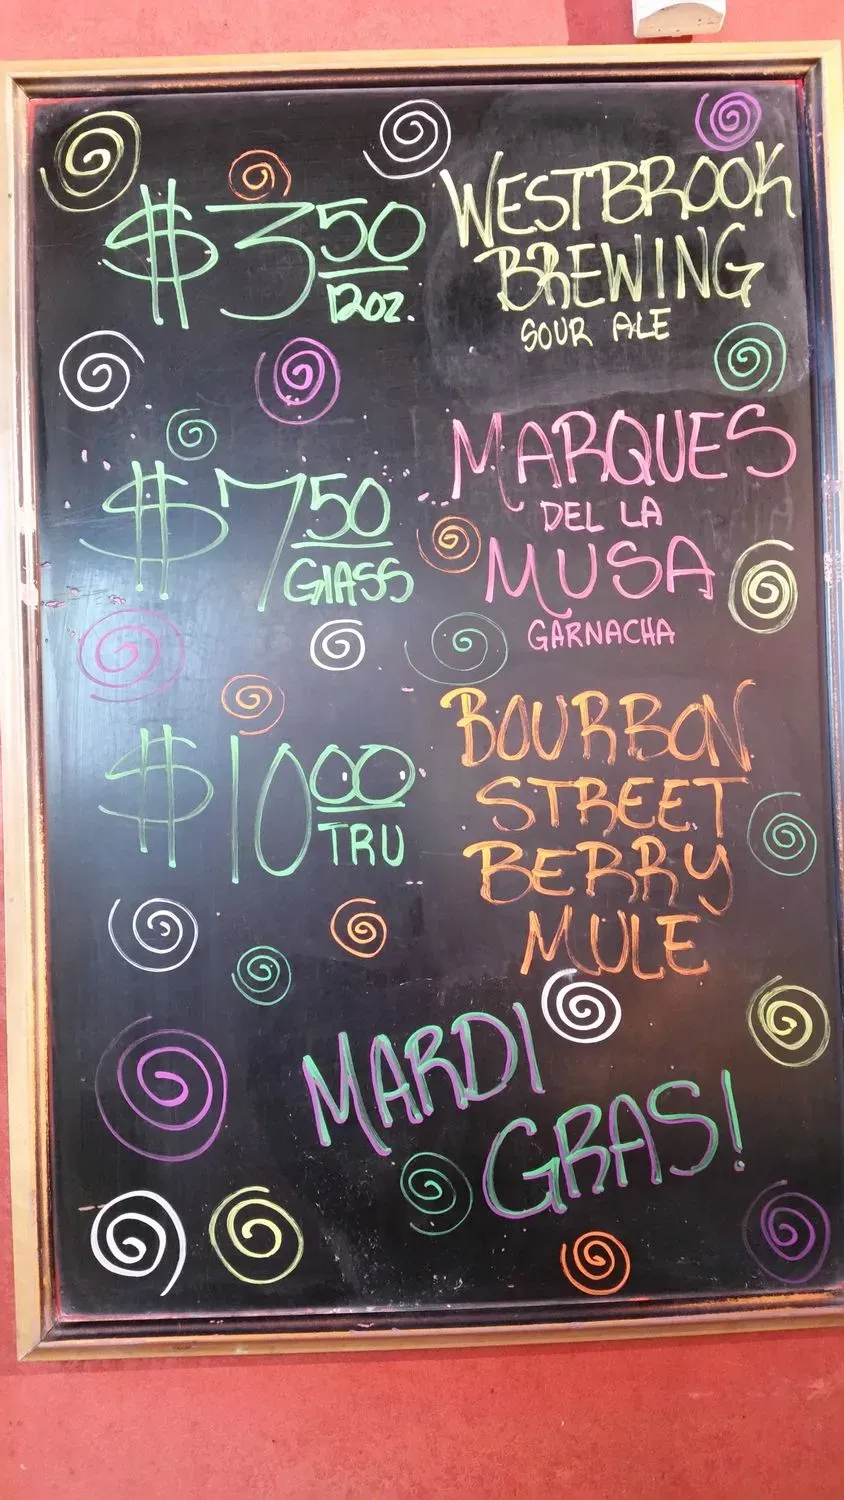 $3 50 12oz.
WESTBROOK
BREWING
SOUR ALE
$7 50 GLASS
MARQUES
DEL LA
MUSA
GARNACHA
$10 00 TRU
BOURBON
STREET
BERRY
MULE
MARDI
GRAS!